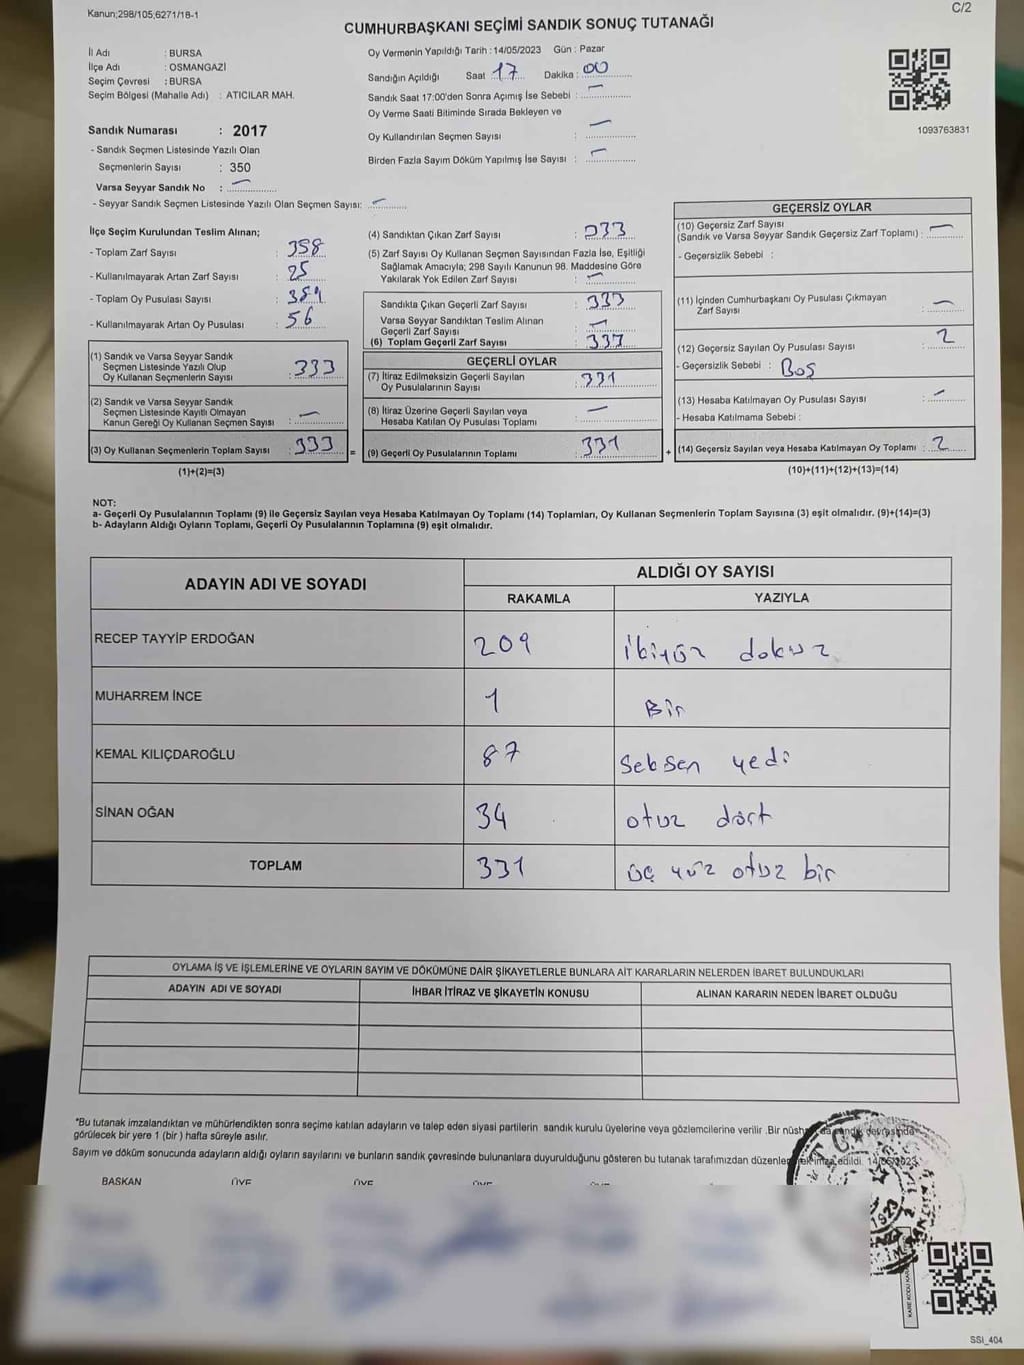 Kanun;298/105,6271/18-1
C/2
CUMHURBAŞKANI SEÇİMİ SANDIK SONUÇ TUTANAĞI
İl Adı : BURSA
İlçe Adı : OSMANGAZİ
Seçim Çevresi : BURSA
Seçim Bölgesi (Mahalle Adı) : ATICILAR MAH.
Sandık Numarası : 2017
- Sandık Seçmen Listesinde Yazılı Olan
Seçmenlerin Sayısı : 350
Varsa Seyyar Sandık No : —
- Seyyar Sandık Seçmen Listesinde Yazılı Olan Seçmen Sayısı: —
Oy Vermenin Yapıldığı Tarih : 14/05/2023 Gün : Pazar
Sandığın Açıldığı Saat 17 Dakika : 00
Sandık Saat 17:00'den Sonra Açımış İse Sebebi : —
Oy Verme Saati Bitiminde Sırada Bekleyen ve
Oy Kullandırılan Seçmen Sayısı : —
Birden Fazla Sayım Döküm Yapılmış İse Sayısı : —
1093763831
İlçe Seçim Kurulundan Teslim Alınan;
- Toplam Zarf Sayısı : 358
- Kullanılmayarak Artan Zarf Sayısı : 25
- Toplam Oy Pusulası Sayısı : 389
- Kullanılmayarak Artan Oy Pusulası : 56
(1) Sandık ve Varsa Seyyar Sandık
Seçmen Listesinde Yazılı Olup
Oy Kullanan Seçmenlerin Sayısı : 333
(2) Sandık ve Varsa Seyyar Sandık
Seçmen Listesinde Kayıtlı Olmayan
Kanun Gereği Oy Kullanan Seçmen Sayısı : —
(3) Oy Kullanan Seçmenlerin Toplam Sayısı : 333
(1)+(2)=(3)
=
(4) Sandıktan Çıkan Zarf Sayısı : 333
(5) Zarf Sayısı Oy Kullanan Seçmen Sayısından Fazla İse, Eşitliği
Sağlamak Amacıyla; 298 Sayılı Kanunun 98. Maddesine Göre
Yakılarak Yok Edilen Zarf Sayısı : —
Sandıkta Çıkan Geçerli Zarf Sayısı : 333
Varsa Seyyar Sandıktan Teslim Alınan
Geçerli Zarf Sayısı : —
(6) Toplam Geçerli Zarf Sayısı : 333
GEÇERLİ OYLAR
(7) İtiraz Edilmeksizin Geçerli Sayılan
Oy Pusulalarının Sayısı : 331
(8) İtiraz Üzerine Geçerli Sayılan veya
Hesaba Katılan Oy Pusulası Toplamı : —
(9) Geçerli Oy Pusulalarının Toplamı : 331
+
GEÇERSİZ OYLAR
(10) Geçersiz Zarf Sayısı
(Sandık ve Varsa Seyyar Sandık Geçersiz Zarf Toplamı) : —
- Geçersizlik Sebebi :
(11) İçinden Cumhurbaşkanı Oy Pusulası Çıkmayan
Zarf Sayısı : —
(12) Geçersiz Sayılan Oy Pusulası Sayısı : 2
- Geçersizlik Sebebi : Boş
(13) Hesaba Katılmayan Oy Pusulası Sayısı : —
- Hesaba Katılmama Sebebi :
(14) Geçersiz Sayılan veya Hesaba Katılmayan Oy Toplamı : 2
(10)+(11)+(12)+(13)=(14)
NOT:
a- Geçerli Oy Pusulalarının Toplamı (9) ile Geçersiz Sayılan veya Hesaba Katılmayan Oy Toplamı (14) Toplamları, Oy Kullanan Seçmenlerin Toplam Sayısına (3) eşit olmalıdır. (9)+(14)=(3)
b- Adayların Aldığı Oyların Toplamı, Geçerli Oy Pusulalarının Toplamına (9) eşit olmalıdır.
ADAYIN ADI VE SOYADI ALDIĞI OY SAYISI
RAKAMLA YAZIYLA
RECEP TAYYİP ERDOĞAN 209 ikiyüz dokuz
MUHARREM İNCE 1 Bir
KEMAL KILIÇDAROĞLU 87 seksen yedi
SİNAN OĞAN 34 otuz dört
TOPLAM 331 üç yüz otuz bir
OYLAMA İŞ VE İŞLEMLERİNE VE OYLARIN SAYIM VE DÖKÜMÜNE DAİR ŞİKAYETLERLE BUNLARA AİT KARARLARIN NELERDEN İBARET BULUNDUKLARI
ADAYIN ADI VE SOYADI İHBAR İTİRAZ VE ŞİKAYETİN KONUSU ALINAN KARARIN NEDEN İBARET OLDUĞU
*Bu tutanak imzalandıktan ve mühürlendikten sonra seçime katılan adayların ve talep eden siyasi partilerin sandık kurulu üyelerine veya gözlemcilerine verilir .Bir nüsh da sandık çevresinde
görülecek bir yere 1 (bir ) hafta süreyle asılır.
Sayım ve döküm sonucunda adayların aldığı oyların sayılarını ve bunların sandık çevresinde bulunanlara duyurulduğunu gösteren bu tutanak tarafımızdan düzenlenerek imza edildi. 14/05/2023
BAŞKAN ÜYE ÜYE ÜYE
T.C.
1923
SSI_404